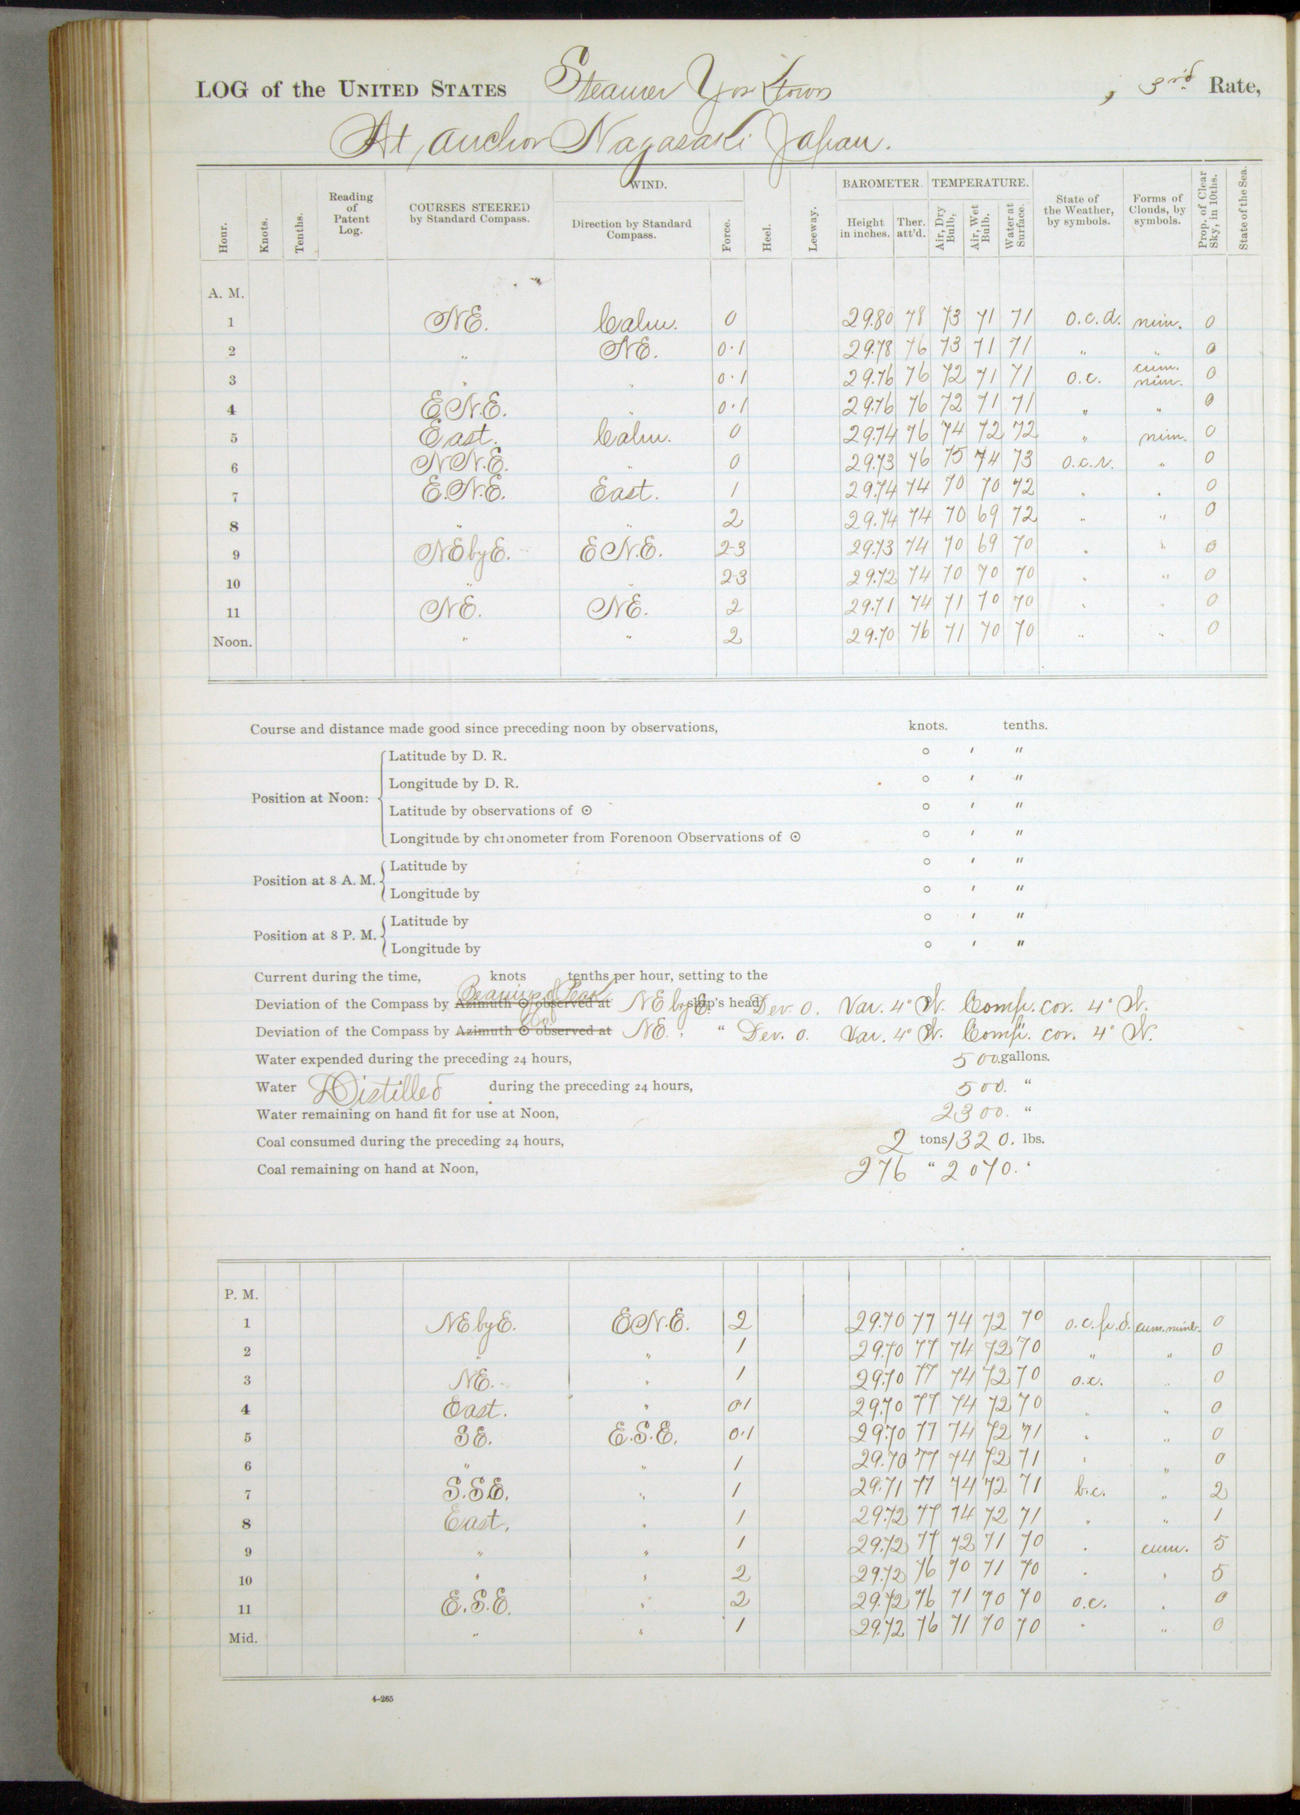 LOG of the UNITED STATES Steamer Yorktown, 3rd Rate,
At anchor Nagasaki Japan.
Hour. Knots. Tenths. Reading of Patent Log. COURSES STEERED by Standard Compass. WIND. Direction by Standard Compass. Force. Heel. Leeway. BAROMETER. Height in inches. Ther. att'd. TEMPERATURE. Air, Dry Bulb. Air, Wet Bulb. Water at Surface. State of the Weather, by symbols. Forms of Clouds, by symbols. Prop. of Clear Sky, in 10ths. State of the Sea.
A. M.
1 NE. Calm. 0 29.80 78 73 71 71 o.c.d. nim. 0
2 " NE. 0.1 29.78 76 73 71 71 " " 0
3 " " 0.1 29.76 76 72 71 71 o.c. cum. nim. 0
4 E.N.E. " 0.1 29.76 76 72 71 71 " " 0
5 East. Calm. 0 29.74 76 74 72 72 " nim. 0
6 N.N.E. " 0 29.73 76 75 74 73 o.c.r. " 0
7 E.N.E. East. 1 29.74 74 70 70 72 " " 0
8 " " 2 29.74 74 70 69 72 " " 0
9 NEbyE. E.N.E. 2-3 29.73 74 70 69 70 " " 0
10 " " 2-3 29.72 74 70 70 70 " " 0
11 NE. NE. 2 29.71 74 71 70 70 " " 0
Noon. " " 2 29.70 76 71 70 70 " " 0
Course and distance made good since preceding noon by observations, knots. tenths.
Position at Noon:
Latitude by D. R. ° ′ ″
Longitude by D. R. ° ′ ″
Latitude by observations of ☉ ° ′ ″
Longitude by chronometer from Forenoon Observations of ☉ ° ′ ″
Position at 8 A. M.
Latitude by ° ′ ″
Longitude by ° ′ ″
Position at 8 P. M.
Latitude by ° ′ ″
Longitude by ° ′ ″
Current during the time, knots tenths per hour, setting to the
Bearing of Peak
Deviation of the Compass by Azimuth ☉ observed at NE by E. ship's head Dev. 0. Var. 4° W. Comp. cor. 4° W.
Deviation of the Compass by Azimuth ☉ observed at NE. " Dev. 0. Var. 4° W. Comp. cor. 4° W.
Water expended during the preceding 24 hours, 500 gallons.
Water Distilled during the preceding 24 hours, 500. "
Water remaining on hand fit for use at Noon, 2300. "
Coal consumed during the preceding 24 hours, 2 tons 1320. lbs.
Coal remaining on hand at Noon, 276 " 2070. "
P. M.
1 NEbyE. E.N.E. 2 29.70 77 74 72 70 o.c.p.d. cum. nimb. 0
2 " " 1 29.70 77 74 72 70 " " 0
3 NE. " 1 29.70 77 74 72 70 o.c. " 0
4 East. " 0.1 29.70 77 74 72 70 " " 0
5 SE. E.S.E. 0.1 29.70 77 74 72 71 " " 0
6 " " 1 29.70 77 74 72 71 " " 0
7 S.S.E. " 1 29.71 77 74 72 71 b.c. " 2
8 East. " 1 29.72 77 74 72 71 " " 1
9 " " 1 29.72 77 72 71 70 " cum. 5
10 " " 2 29.72 76 70 71 70 " " 5
11 E.S.E. " 2 29.72 76 71 70 70 o.c. " 0
Mid. " " 1 29.72 76 71 70 70 " " 0
4-265